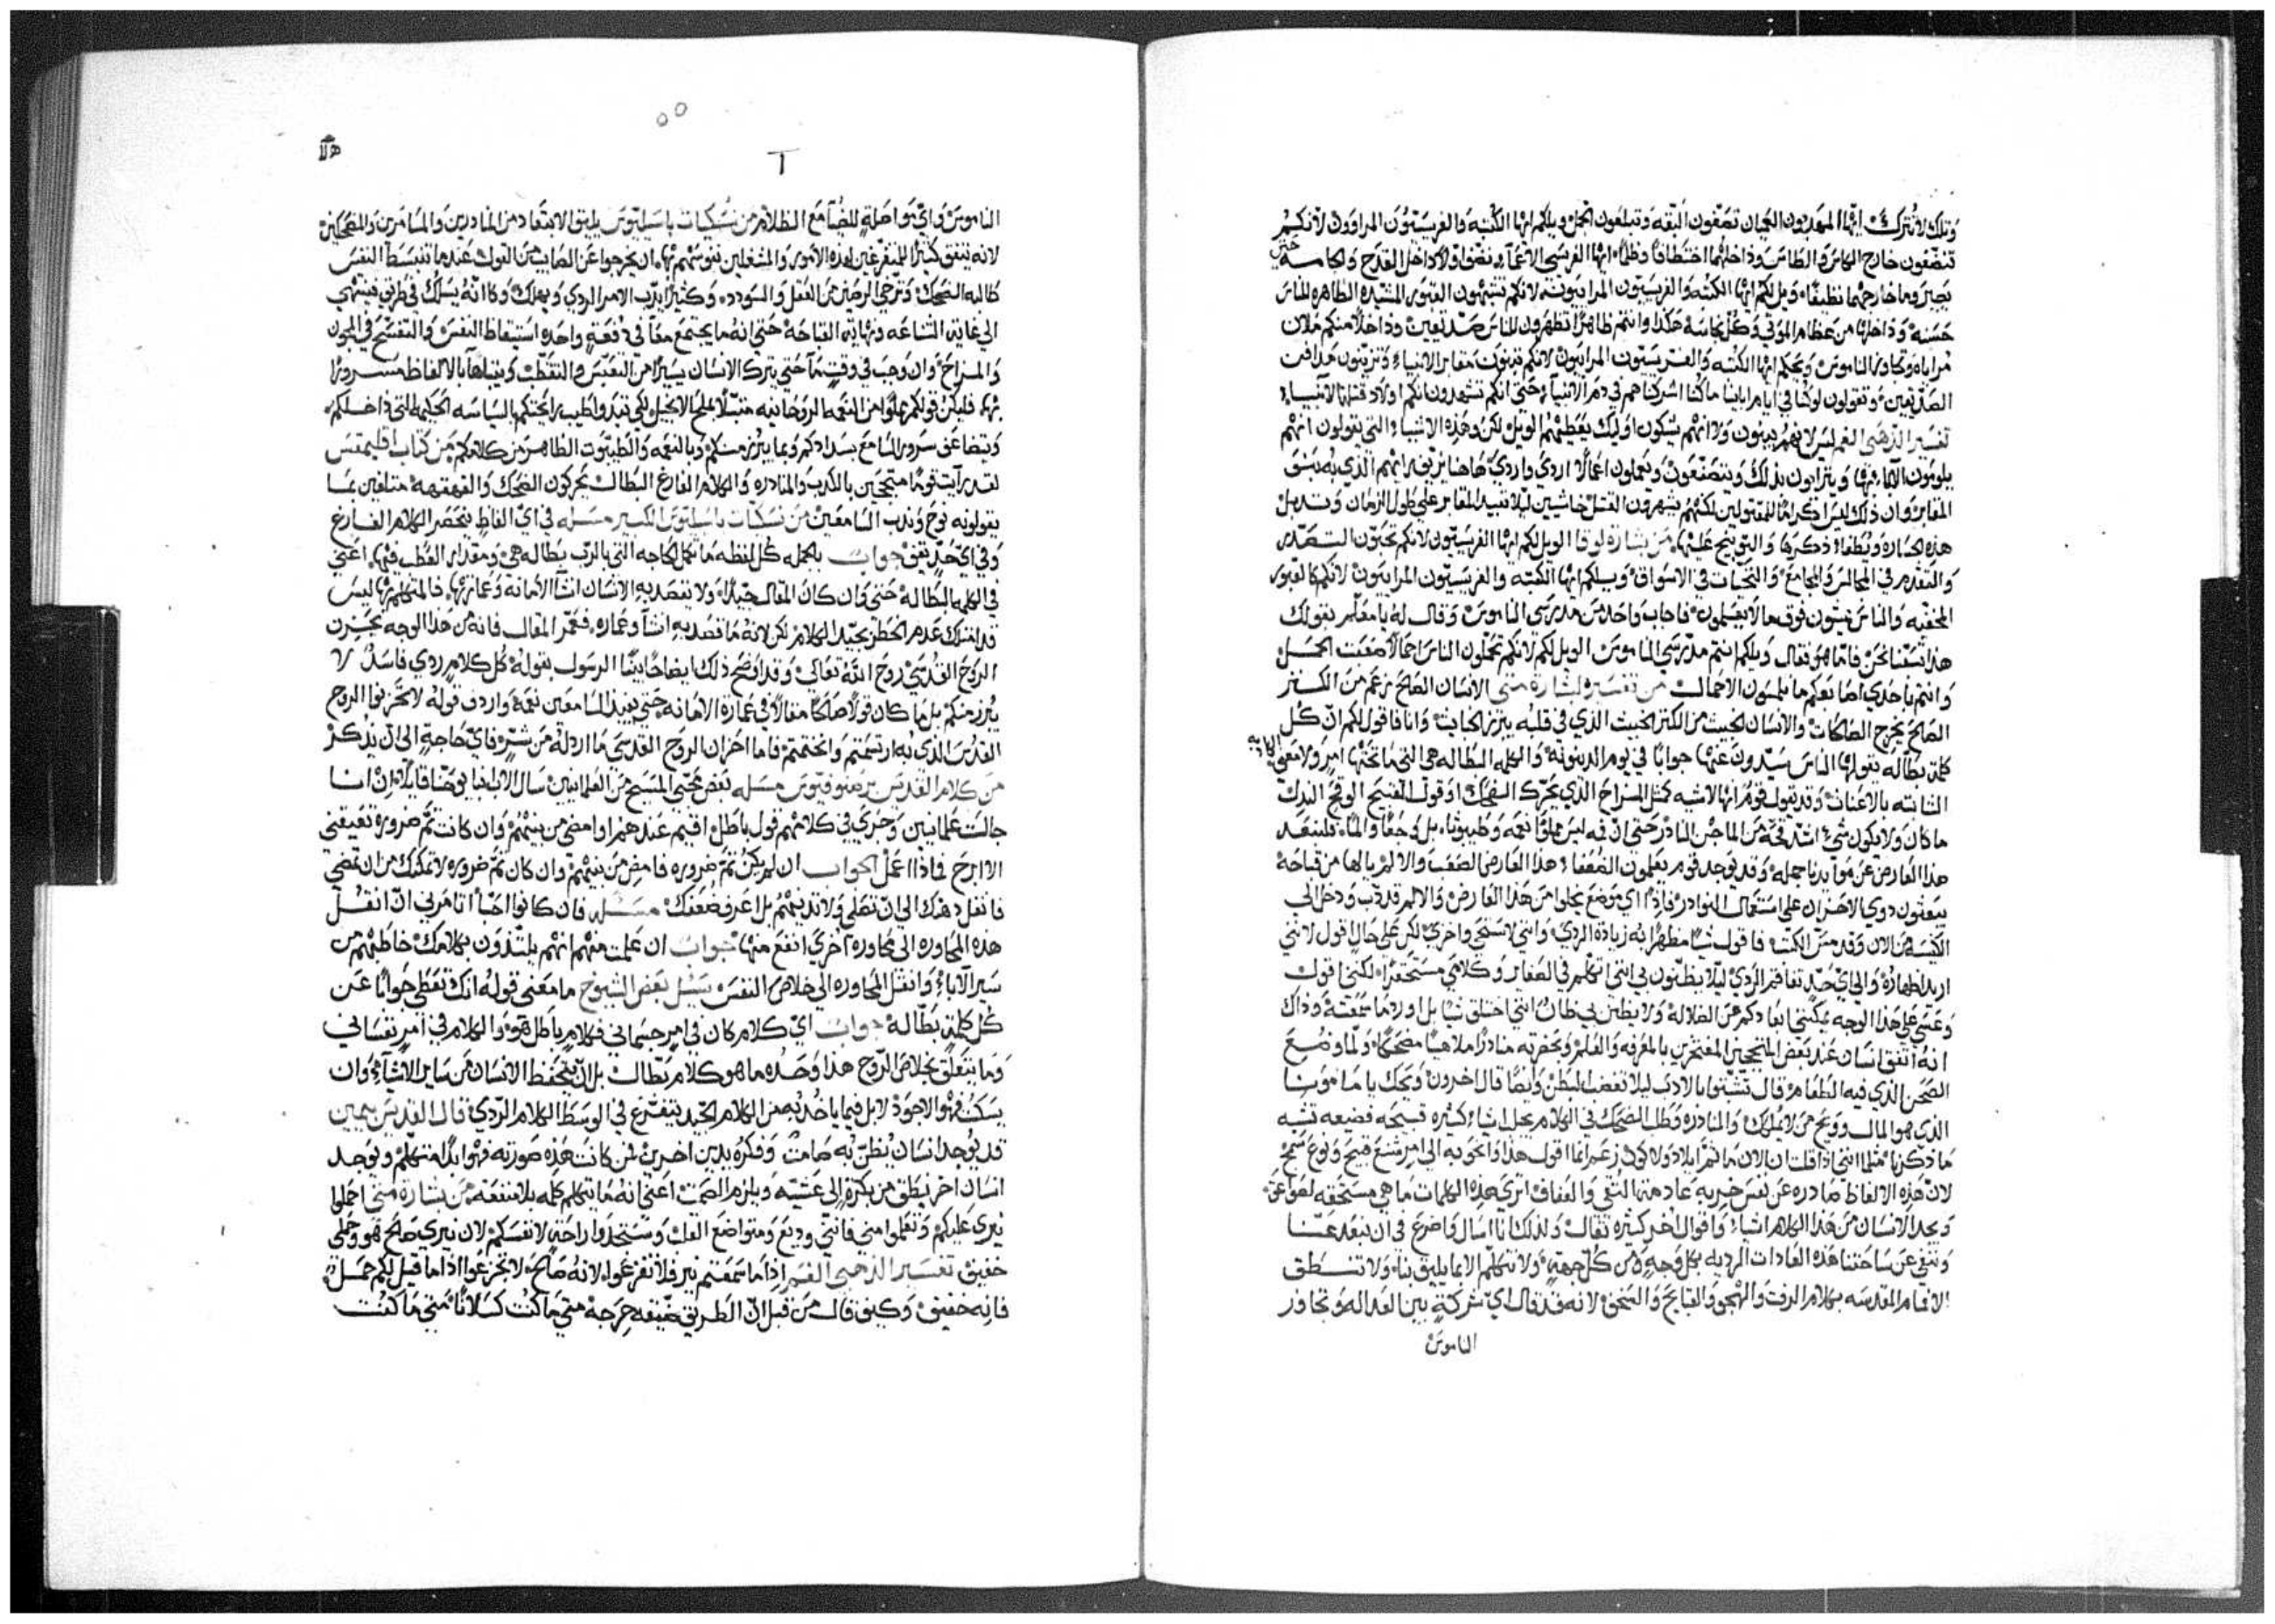 وتلك لا تترك ايها المهديون العميان تصفون البقه وتبلعون الجمل ويلكم ايها الكتبه والفريسيون المراوون لانكم
تنضفون خارج الكاس والطاس وداخلهما اختطافا وظلما ايها الفريسي الاعما نضف اولا داخل القدح والكاسه حتى
يصير وما خارجهما نظيفا ويل لكم ايها الكتبه والفريسيون المرايون لانكم تشبهون القبور المشيده الظاهره للناس
حسنه وداخلها من عظام الموتى وكل نجاسه هكذا وانتم ظاهرا تظهرون للناس صديقين وداخلا منكم ملان
مراياه وتجاوز الناموس ويحكم ايها الكتبه والفريسيون المرايون لانكم تبنون مقابر الانبياء وتزينون مدافن
الصديقين وتقولون لو كنا في ايام اباينا ما كنا اشركناهم في دم الانبياء حتى انكم تشهدون انكم اولاد قتلة الانبياء
تفسير الذهبي الفم ليس لانهم يبنون ولا انهم يشكون اوليك يعطيهم الويل لكن وهذه الاشياء التي يقولون انهم
يلومون الاباء بها ويتراون بذلك ويتصنعون ويعملون اعمالا اردى واردى
المقابر وان ذلك ليس اكراما للمقتولين لكنهم يشهرون القتل خاشيين ليلا تبيد المقابر على طول الزمان وتدبل
هذه الجساره ويطفا ذكرها والتوبيخ عليها من بشارة لوقا الويل لكم ايها الفريسيون لانكم تحبون التصدر
والتقدم في المجالس والمجامع والتحيات في الاسواق ويلكم ايها الكتبه والفريسيون المرايون لانكم كالقبور
المخفيه والناس يمشون فوقها لا يعلمون فاجاب واحد من مدرسي الناموس وقال له يا معلم بقولك
هذا تشتمنا نحن فاما هو فقال ويلكم انتم مدرسي الناموس الويل لكم لانكم تحملون الناس احمالا صعبت الحمل
وانتم باحدى اصابعكم ما تلمسون الاحمال من تفسير بشارة متى الانسان الصالح زعم من الكنز
الصالح يخرج الصالحات والانسان الخبيث من الكنز الخبيث الذي في قلبه يبرز الخبايث وانا فاقول لكم ان كل
كلمة بطاله يقولها الناس سيردون عنها جوابا في يوم الدينونه والكلمه البطاله هي التي ما تحتها امر ولا معنى الكاذبه
الثابته بالاعنات وقد يقول قوم انها لاشيه كمثل المزاح الذي يحرك الضحك او قول القبيح الوقح البدل
ما كان ولا يكون شيء اشد قحة من الماجن النادر حتى ان فيه ليس مملوا نعمه وطيبوثا بل وجعا والما فليبتعد
هذا العارض عن موايدنا جمله وقد يوجد قوم يعلمون الضعفا هذا العارض الصعب والالم يالها من قباحه
يبعثون دوي الاحزان على استعمال النوادر فاذا اي موضع يخلوا من هذا العارض والالم قد دب ودخل الى
الكنيسه الان وقد مس الكتب فاقول شيا مظهرا به زيادة الردي وانني لاستحي واخزي لكن على حال اقول لانني
اريد اظهاره والى اي حد تفاقم الردي ليلا يظنون بي انني اتكلم في الصغاير وكلامي مستحقرا لكنني اقول
وعسى على هذا الوجه يمكنني ابعادكم عن الضلاله ولا يظن بي ظان انني اختلق شيا بل اورد ما سمعته وذاك
انه اتفق انسان عند بعض المتبجحين المفتخرين بالمعرفه والعلم وبحضرته منادرا ملاهيا مضحكا ولما وضع
الصحن الذي فيه الطعام قال تشبثوا بالادب ليلا تغضب البطن وايضا قال اخرون ويحك يا مامونا
الذي هو المال وويح من لا يملكك والمنادره وطلب الضحك في الكلام يجلب اشياء كثيره قبيحه فضيعه تشبه
ما ذكرنا مثلما انني اذا قلت ان الان ما ثم ايلادا ولا كون زعم انما اقول هذا وانحو به الى امر شنع قبيح ونوع سمج
لان هذه الالفاظ صادره عن نفس خربه عادمة التقى والعفاف اترى هذه الكلمات ما هي مستحقه لصواعق
ويجد الانسان من هذا الكلام اشياء واقوال اخر كثيره تقال ولذلك انا اسال واضرع في ان نبعد عنا
وننفي عن ساحتنا هذه العادات الرديه بكل وجه ومن كل جهة ولا نتكلم الا بما يليق بنا ولا تنطق
الافمام المقدسه بكلام الرفث والهجو والقبايح والسخف لانه قد قال اي شركة بين العداله وتجاوز
الناموس
الناموس واي مواصلة للضيا مع الظلام من نسكيات باسيليوس يليق الابتعاد من النادرين والمسامرين والمضحكين
لانه يتفق كثيرا للمتفرغين لهذه الامور والمشغلين نفوسهم بها ان يخرجوا عن الصايب من القول عندما تنبسط النفس
طالبه الضحك وترخي الرصين من العقل والسودد وكثيرا يدب الامر الردي ويهلك وكانه يسلك في طريق فينتهي
الى غاية الشناعه ونهاية القباحه حتى انه ما يجتمع معا في دفعة واحده استيقاظ النفس والتفسح في المجون
والمزاح وان وجب في وقت ما حتى يترك الانسان يسيرا من التعبس والتقطب ويتباها بالالفاظ مسرورا
بها فليكن قولكم مملوا من النعمه الروحانيه متبلا بملح الانجيل لكي تفيد واطيب رايحتكم بالسياسه الحكيمه التي داخلكم
وتضاعف سرور السامع بسدادكم وبما يبرز منكم وبالنعمه والطيبوت الظاهر من كلامكم من كتاب اقليمقس
لقد رايت قوما متبجحين بالكذب والمنادره والكلام الفارغ البطال يحركون الضحك والقهقهه متلفين بما
يقولونه نوح وندب السامعين من نسكيات باسيليوس الكبير مسله في اي الفاظ ينحصر الكلام الفارغ
وفي اي حد يقف جواب بالجمله كل لفظه ما تكمل الحاجه التي بالرب بطاله هي ومقدار العطب فيها اعني
في الكلمه البطاله حتى وان كان المقال جيدا ولا تقصد به الانسان انشا الامانه وعمارتها فالمتكلم بها ليس
قد امتلك عدم الخطر بجيد الكلام لكن لانه ما قصد به انشا وعماره فغم المقال فانه من هذا الوجه يحزن
الروح القدسي روح الله تعالى وقد اوضح ذلك ايضاحا بينا الرسول بقوله كل كلام ردي فاسد لا
يبرز منكم بل ما كان قولا صالحا مقالا في عمارة الامانه حتى يفيد السامعين نعمه واردف قوله لا تحزنوا الروح
القدس الذي به ارتسمتم وانختمتم فاما احزان الروح القدسي ما اردله من شر فاي حاجة الى ان يذكر
من كلام القديس برصنوفيوس مسله بعض محبي المسيح من العلمانيين سال الاب انبا يوحنا قايلا ان انا
جالست علمانيين وجرى في كلامهم قول باطل اقيم عندهم او امضي من بينهم وان كانت ثم ضروره تعيقني
الا ابرح فماذا اعمل الجواب ان لم يكن ثم ضروره فامض من بينهم وان كان ثم ضروره لا تمكنك من ان تمضي
فانقل دهنك الى ان تصلي ولا تدينهم بل اعرف ضعفك مسله فان كانوا احبا اتامرني ان انقل
هذه المحاوره الى محاوره اخرى انفع منها جواب ان علمت منهم انهم يلتذون بكلامك خاطبهم من
سير الآباء وانقل المحاوره الى خلاص النفس سيل بعض الشيوخ ما معنى قوله انك تعطي جوابا عن
كل كلمة بطاله جواب اي كلام كان في امر جسماني فكلام باطل هو والكلام في امر نفساني
وما يتعلق بخلاص الروح هذا وحده ما هو كلام بطال بل ان يتحفظ الانسان من ساير الاشيا وان
يسكت فهو الاجود لا بل فيما ياخذ بعض الكلام الجيد يتفرع في الوسط الكلام الردي قال القديس بيمين
قد يوجد انسان يظن به صامت وفكره يدين اخرين فمن كانت هذه صورته فهو ابدا متكلم ويوجد
انسان اخر ينطق من بكرة الى عشيه ويلزم الصمت اعني انه ما يتكلم كلمه بلا منفعه من بشارة متى احملوا
نيري عليكم وتعلموا مني فانني وديع ومتواضع القلب وستجدوا راحة لانفسكم لان نيري صالح هو وحملي
خفيف تفسير الذهبي الفم اذا ما سمعتم نير فلا تفزعوا لانه صالح لا تجزعوا اذا ما قيل لكم حمل
فانه خفيف وكيف قال من قبل ان الطريق ضيقه حرجه متى ما كنت كسلانا متى ما كنت